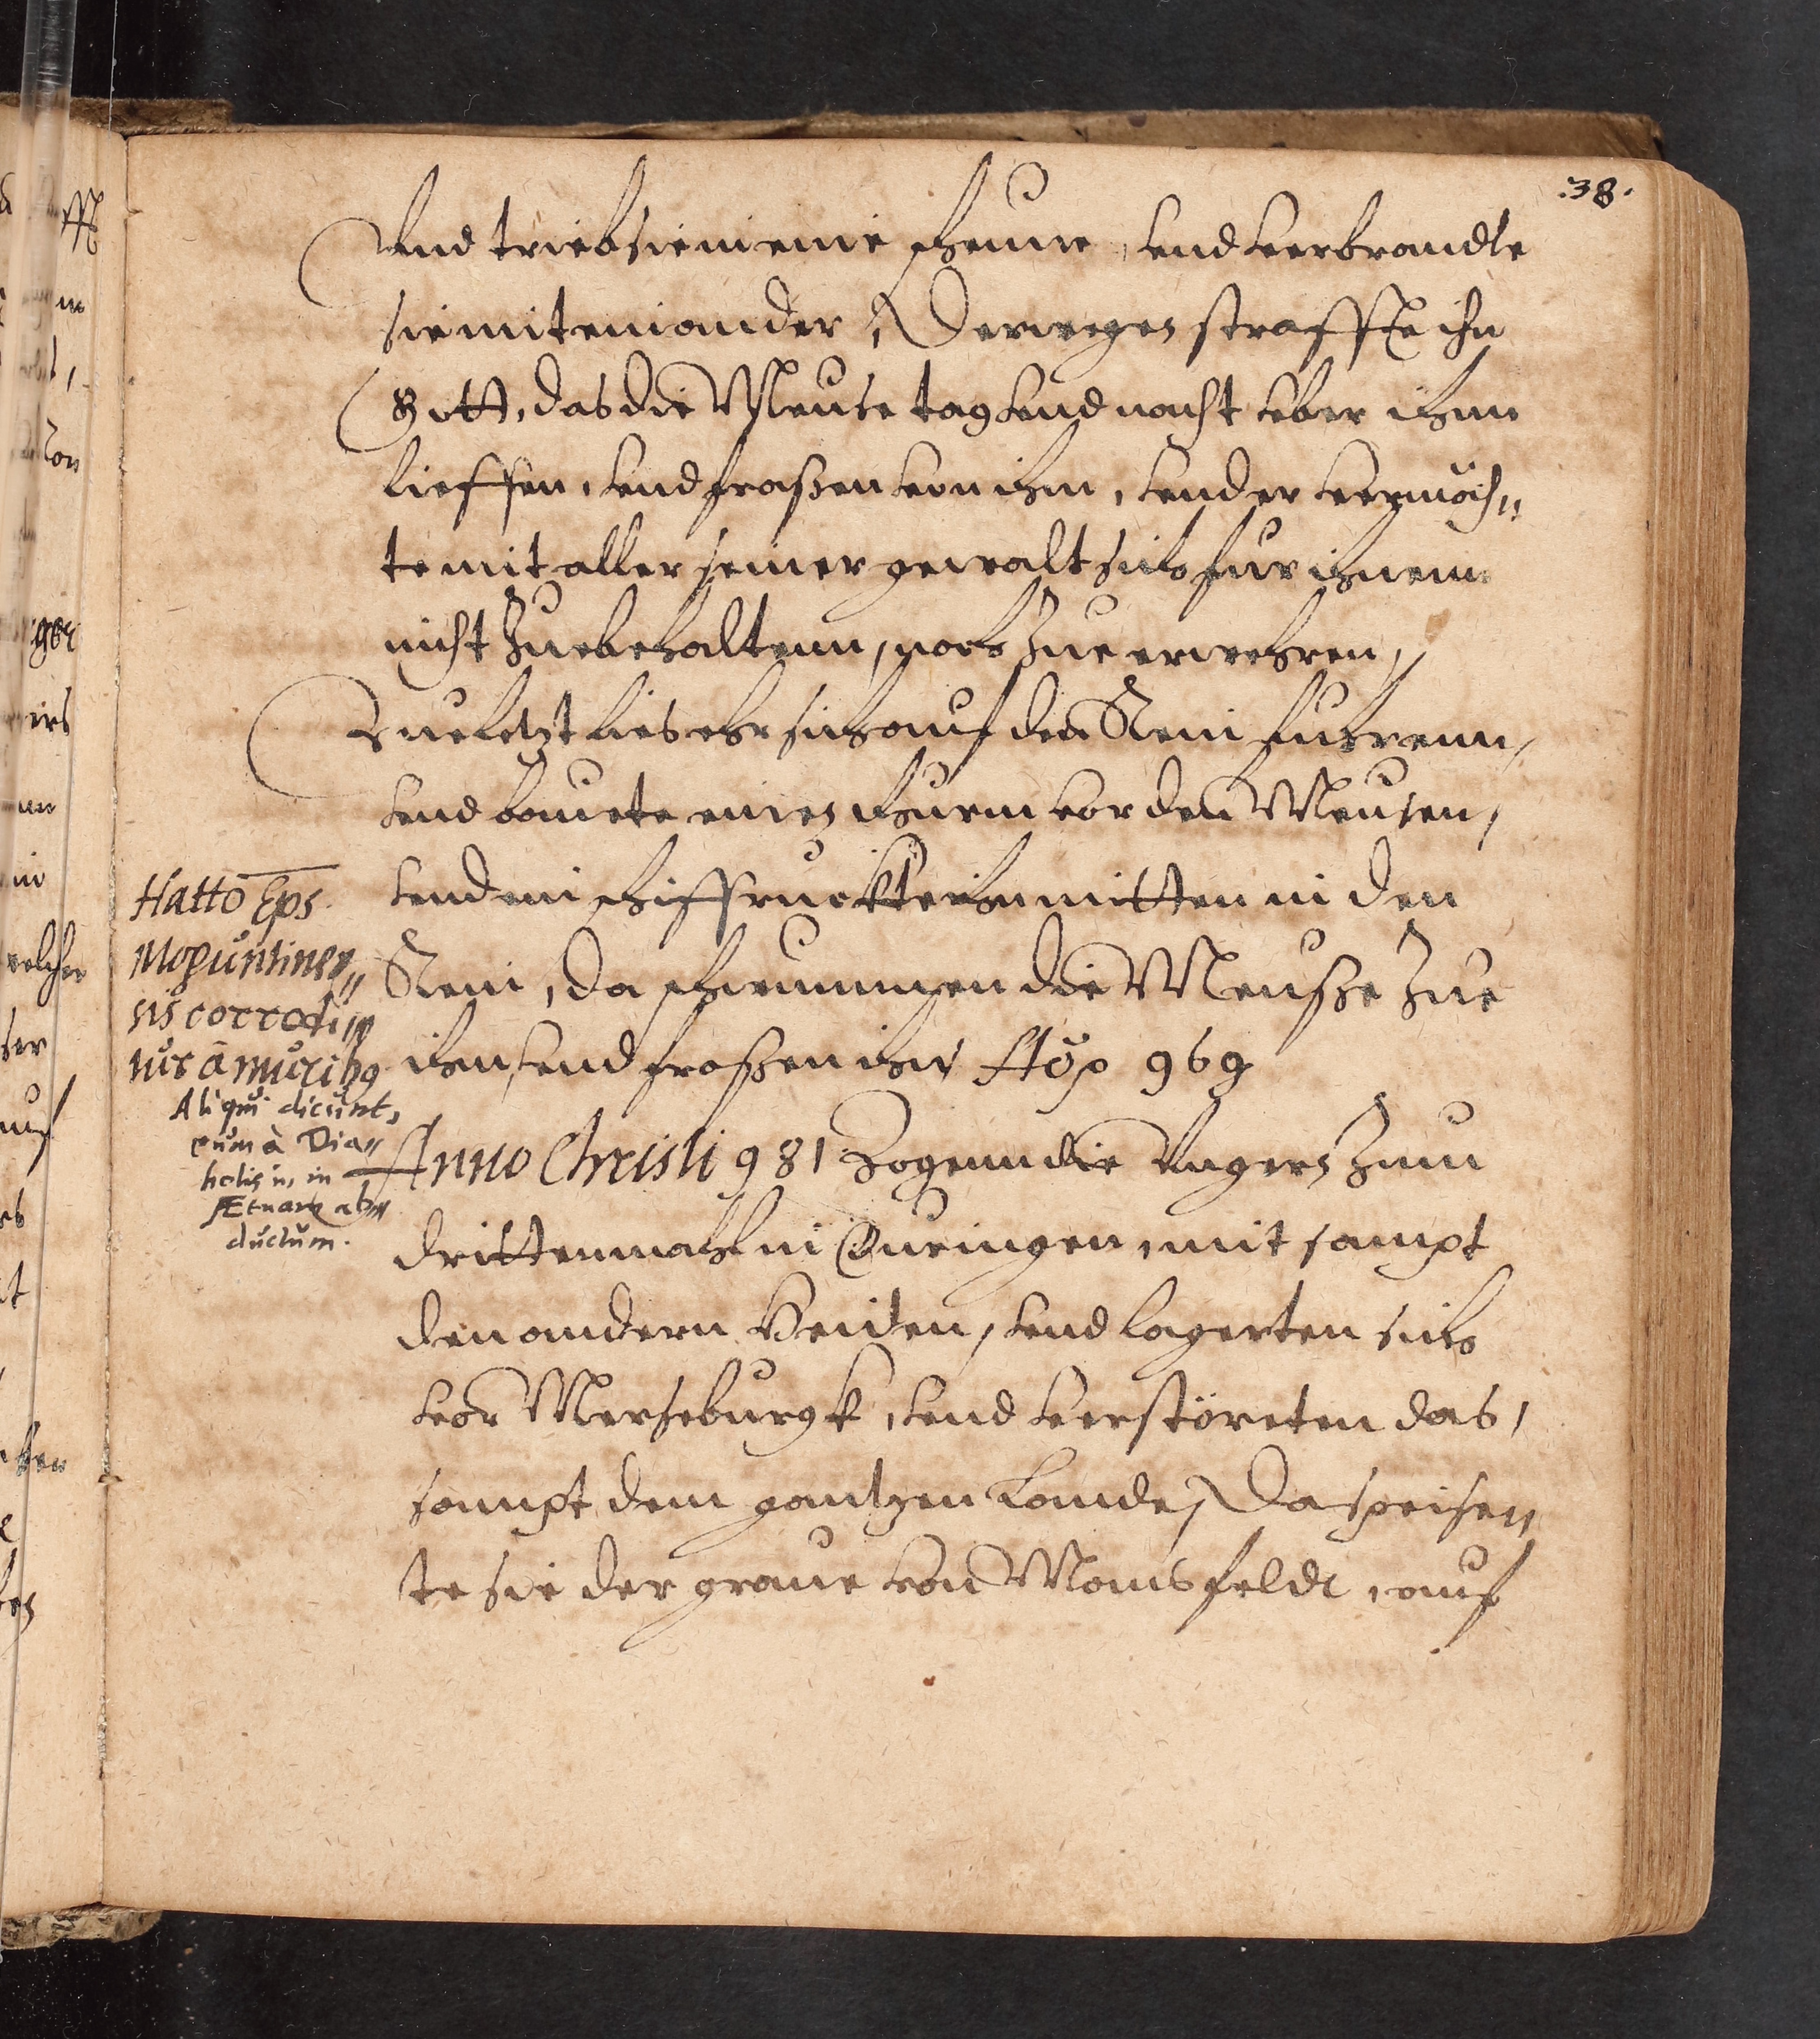 38.
Vnd trieb sie in eine scheune, vnd verbrandte
sie miteinander, Derwegen straffte ihn
Gott, das die Meuse tag vnd nacht vber ihnn
lieffen, vnd fraßen von ihm, vnd er vermöch„
te mit aller seiner gewalt sich fur ihnenn
nicht zue behaltenn, noch zue erwehren,
Zue letzt lies ehr sich auf den Rein fuhrenn,
vnd bauete einen thurm vor den Meusen,
vnd im schiff ruckte ihn mitten in den
Rein, da schwummen die Meusße zue
ihm, vnd fraßen ihn 969
Hatto Eps
Moguntinen„
sis corrodi„
tur à muribg
Aliqui dicunt,
eum à Dia„
bolis in
Ætnam ab„
ductum.
Anno Christi 981 Zogenn die Vngern zum
drittenmahl in Dueringen, mit sampt
den andern Heiden, vnd lagerten sich
vor Merseburgk, vnd verstöreten das,
sampt dem gantzen Lande, Da speise„
te sie der graue von Mansfeldt, auf